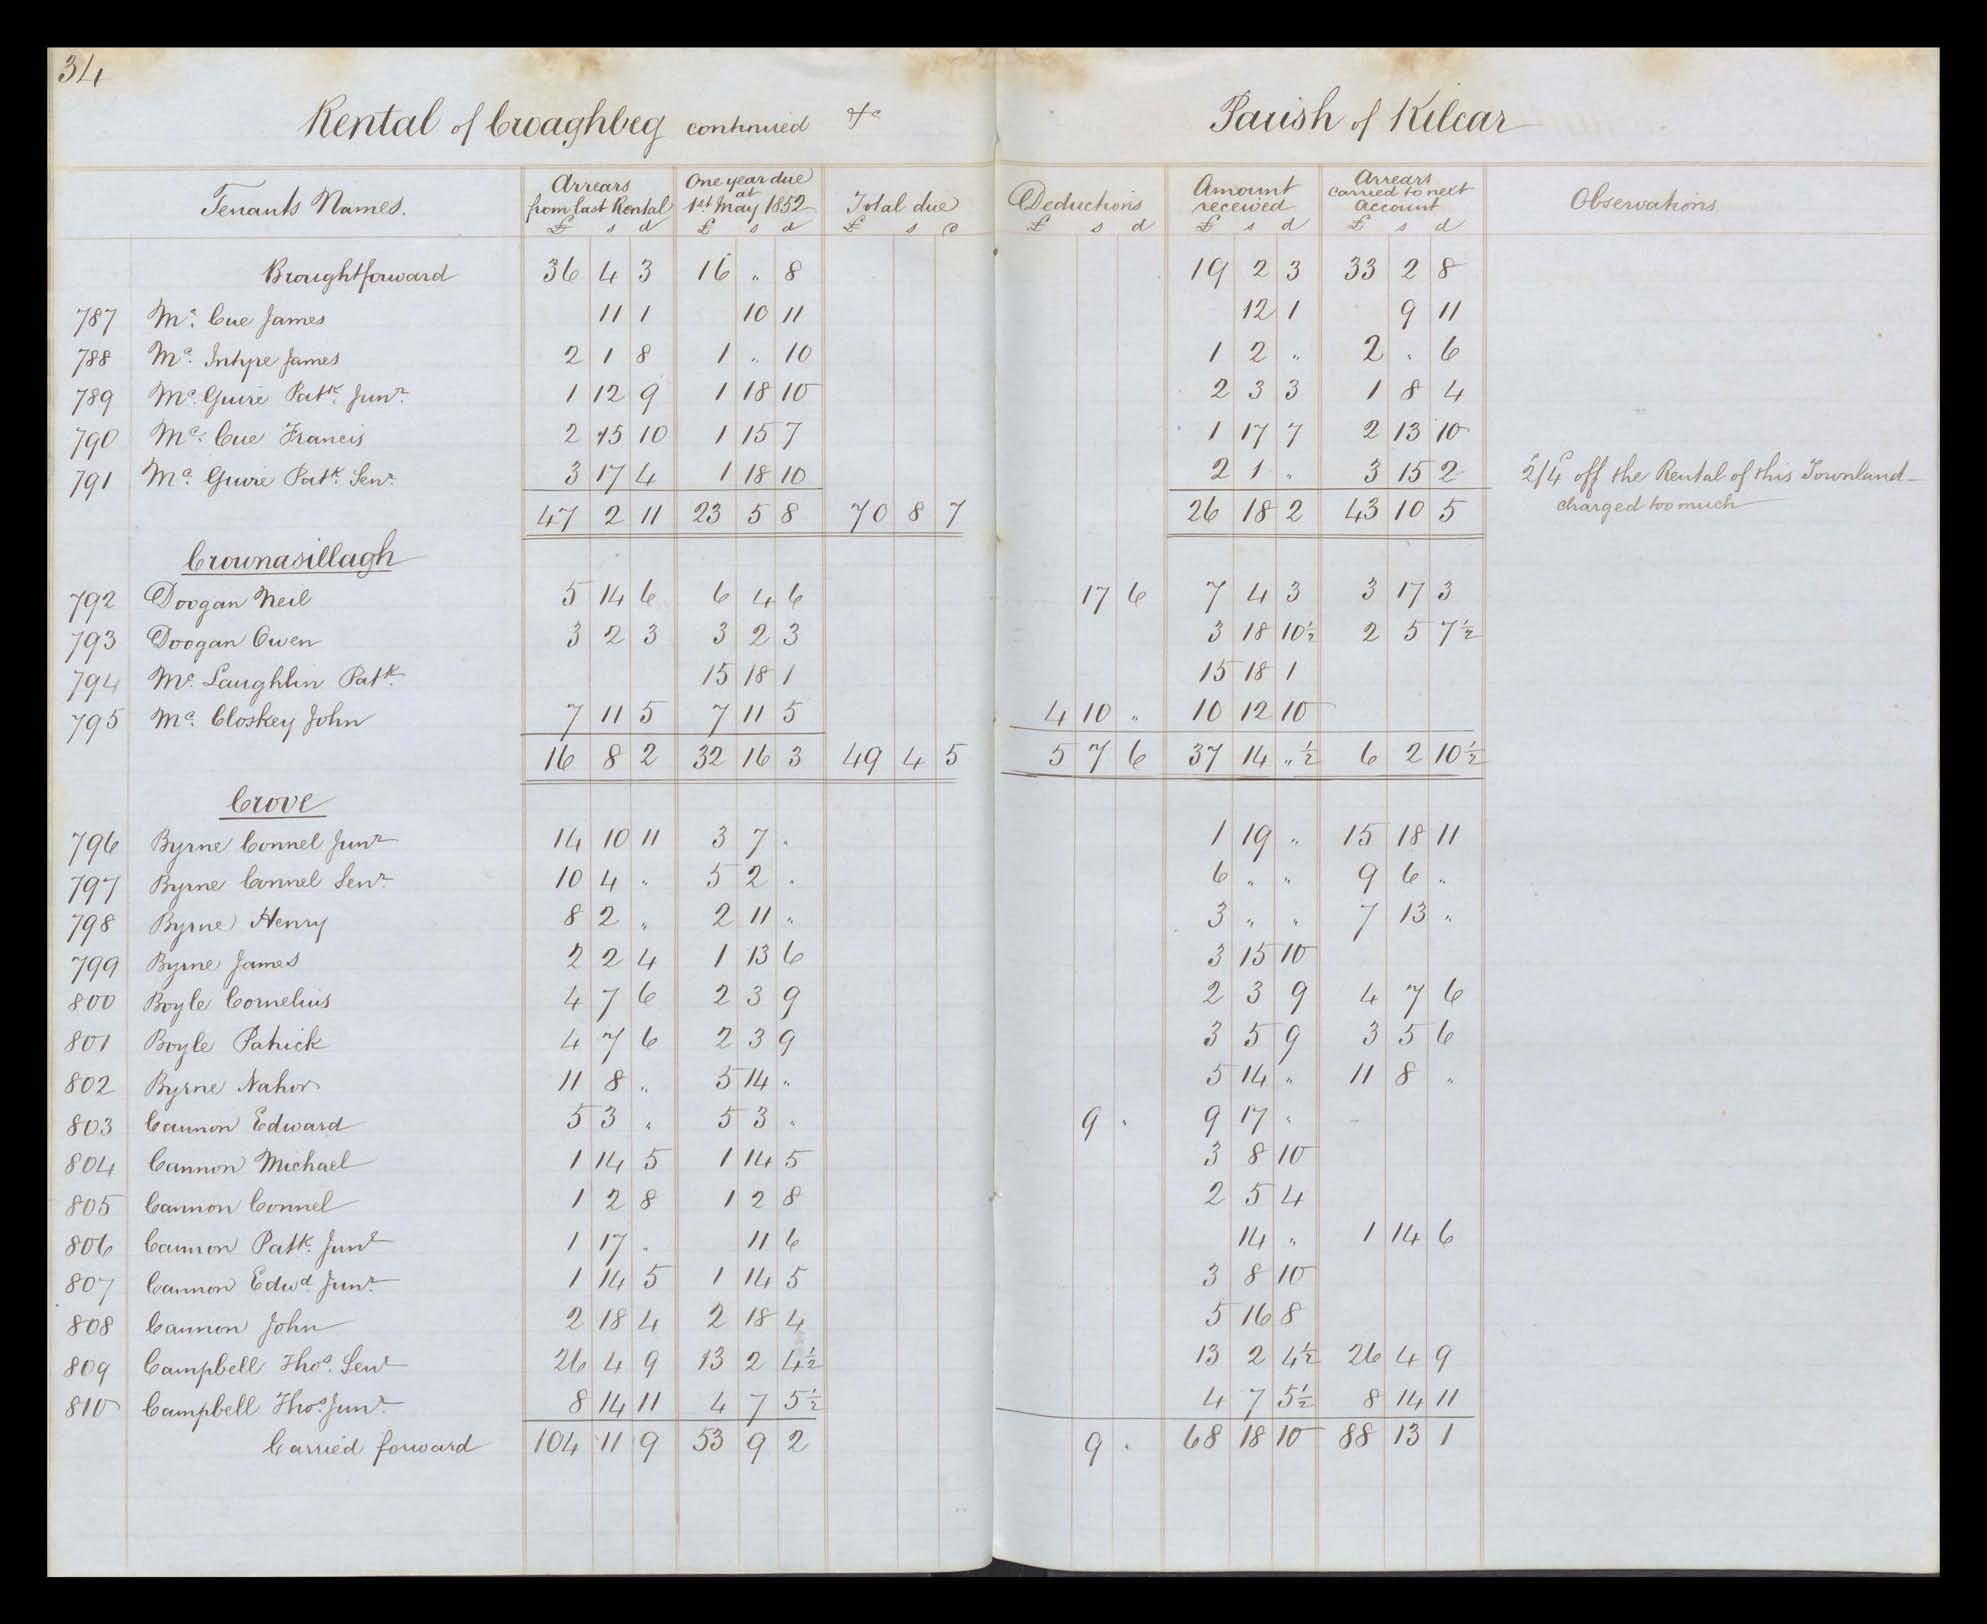 34
Rental of Croaghbeg continued &c Parish of Kilcar
Tenants Names. Arrears from last Rental One year due at 1st May 1852 Total due Deductions Amount received Arrears carried to next Account Observations
£ s d £ s d £ s d £ s d £ s d £ s d
Brought forward 36 4 3 16 " 8 19 2 3 33 2 8
787 Mc. Cue James 11 1 10 11 12 1 9 11
788 Mc. Intyre James 2 1 8 1 " 10 1 2 " 2 " 6
789 Mc. Guire Patk. Junr. 1 12 9 1 18 10 2 3 3 1 8 4
790 Mc. Cue Francis 2 15 10 1 15 7 1 17 7 2 13 10
791 Mc. Guire Patk. Senr. 3 17 4 1 18 10 2 1 " 3 15 2 2/4 off the Rental of this Townland
47 2 11 23 5 8 70 8 7 26 18 2 43 10 5 charged too much
Crownasillagh
792 Doogan Neil 5 14 6 6 4 6 17 6 7 4 3 3 17 3
793 Doogan Owen 3 2 3 3 2 3 3 18 10½ 2 5 7½
794 Mc. Laughlin Patk. 15 18 1 15 18 1
795 Mc. Closkey John 7 11 5 7 11 5 4 10 " 10 12 10
16 8 2 32 16 3 49 4 5 5 7 6 37 14 " ½ 6 2 10½
Crove
796 Byrne Connel Junr 14 10 11 3 7 " 1 19 " 15 18 11
797 Byrne Connel Senr. 10 4 " 5 2 " 6 " " 9 6 "
798 Byrne Henry 8 2 " 2 11 " 3 " " 7 13 "
799 Byrne James 2 2 4 1 13 6 3 15 10
800 Boyle Cornelius 4 7 6 2 3 9 2 3 9 4 7 6
801 Boyle Patrick 4 7 6 2 3 9 3 5 9 3 5 6
802 Byrne Nahor 11 8 " 5 14 " 5 14 " 11 8 "
803 Cannon Edward 5 3 " 5 3 " 9 " 9 17 "
804 Cannon Michael 1 14 5 1 14 5 3 8 10
805 Cannon Connel 1 2 8 1 2 8 2 5 4
806 Cannon Patk. Junr 1 17 " 11 6 14 " 1 14 6
807 Cannon Edwd. Junr. 1 14 5 1 14 5 3 8 10
808 Cannon John 2 18 4 2 18 4 5 16 8
809 Campbell Thos. Senr 26 4 9 13 2 4½ 13 2 4½ 26 4 9
810 Campbell Thos. Junr. 8 14 11 4 7 5½ 4 7 5½ 8 14 11
Carried forward 104 11 9 53 9 2 9 " 68 18 10 88 13 1